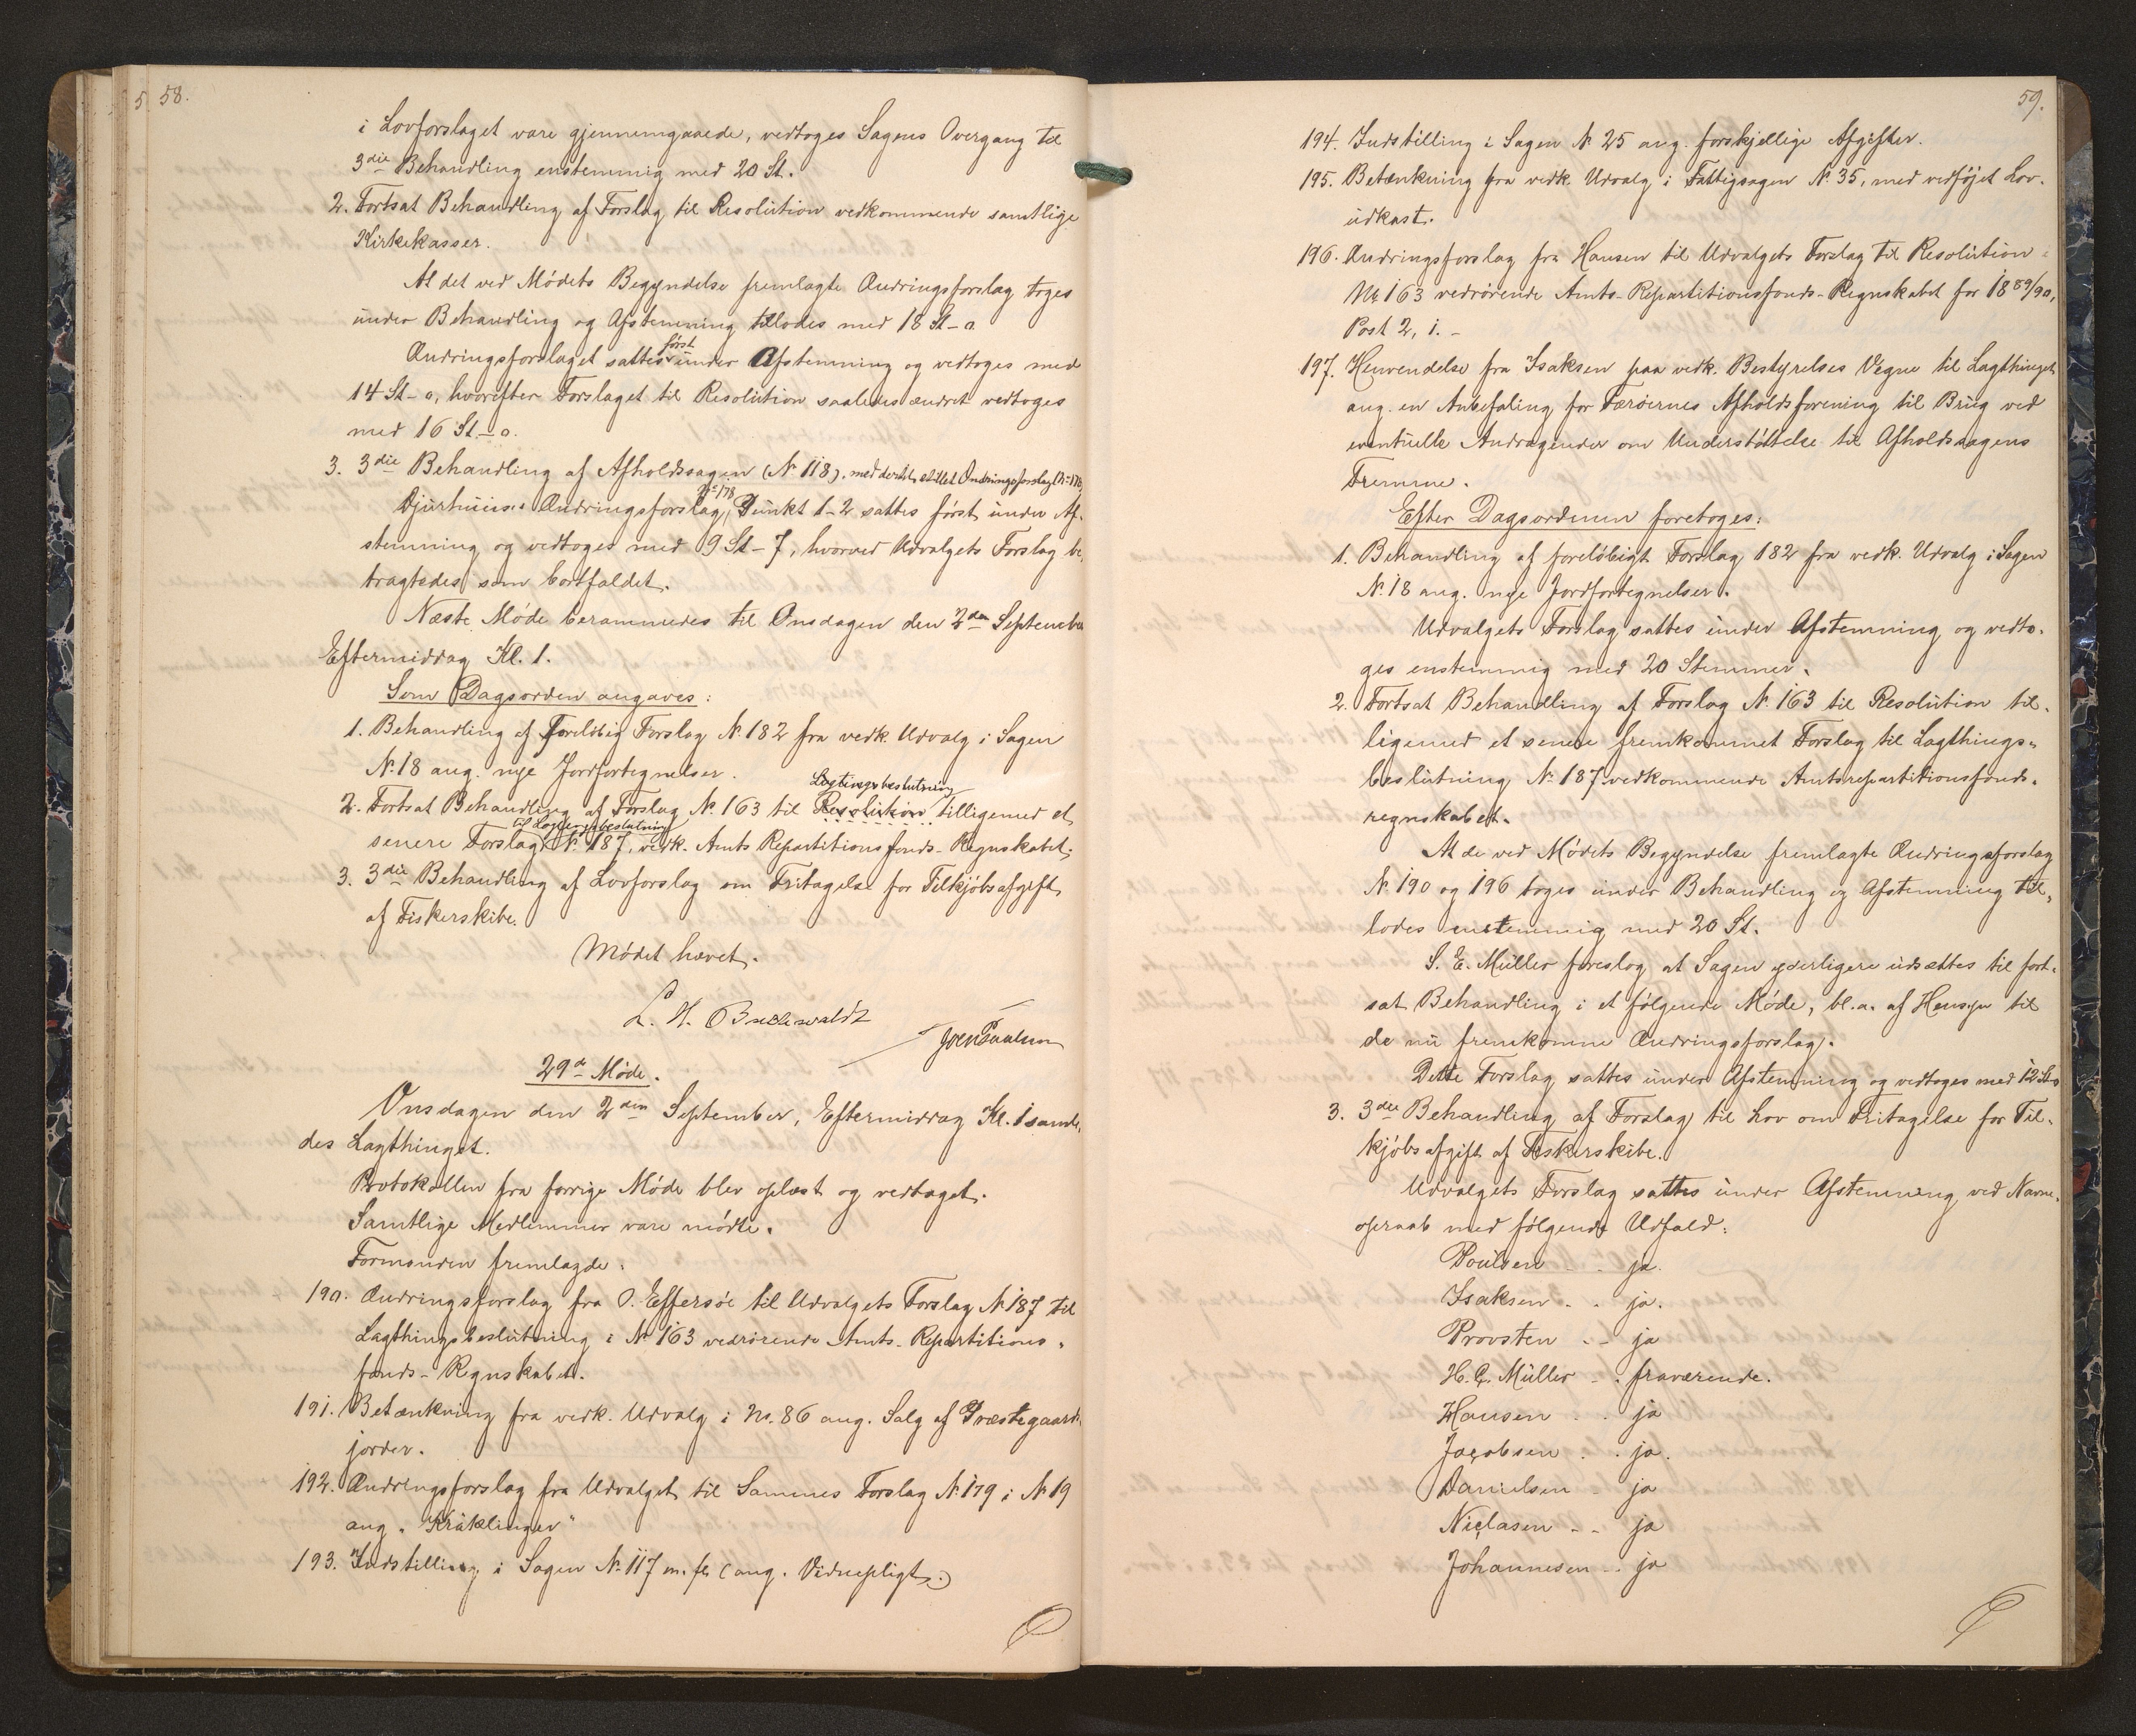 58.
i Lovforslaget vare gjennemgaaede, vedtoges Sagens Overgang til
3die Behandling enstemmig med 20 St.
2. Fortsat Behandling af Forslag til Resolution vedkommende samtlige
Kirkekasser.
At det ved Mødets Begyndelse fremlagte Ændringsforslag toges
under Behandling og Afstemning tillodes med 18 St - o.
Ændringsforslaget sattes først under Afstemning og vedtoges med
14 St - o, hvorefter Forslaget til Resolution saaledes ændret vedtoges
med 16 St - o.
3. 3die Behandling af Afholdssagen (Nr 118), med dertil stillet Ændringsforslag (Nr 178)
Djurhuus's Ændringsforslag, Nr 178, Punkt 1-2 sattes først under Af-
stemning og vedtoges med 9 St - 7, hvorved Udvalgets Forslag be-
tragtedes som bortfaldet.
Næste Møde berammedes til Onsdagen den 2den September
Eftermiddag Kl. 1.
Som Dagsorden angaves:
1. Behandling af foreløbig Forslag Nr 182 fra vedk. Udvalg i Sagen
Nr 18 ang. nye Jordfortegnelser.
2. Fortsat Behandling af Forslag Nr 163 til Resolution Lagtingsbeslutning tilligemed et
senere Forslag til Lagtingsbeslutning Nr 187, vedk. Amts Repartitionsfonds-Regnskabet.
3. 3die Behandling af Lovforslag om Fritagelse for Tilkjøbsafgift
af Fiskerskibe.
Mødet hævet.
L. H. Buchwaldt
Joen Poulsen
29de Møde.
Onsdagen den 2den September, Eftermiddag Kl. 1 samle-
des Lagthinget.
Protokollen fra forrige Møde blev oplæst og vedtaget.
Samtlige Medlemmer vare mødte.
Formanden fremlagde:
190. Ændringsforslag fra O. Effersøe til Udvalgets Forslag Nr 187 til
Lagthingsbeslutning i Nr 163 vedrørende Amts-Repartitions-
fonds-Regnskabet.
191. Betænkning fra vedk. Udvalg i Nr. 86 ang. Salg af Præstegaards-
jorder.
192. Ændringsforslag fra Udvalget til Sammes Forslag Nr 179 i Nr 19
ang. "Kräklinger"
193. Indstilling i Sagen Nr 117 m. fl. (ang. Vidnepligt.)
59.
194. Indstilling i Sagen Nr 25 ang. forskjellige Afgifter.
195. Betænkning fra vedk. Udvalg i Fattigsagen Nr. 35, med vedføjet Lov-
udkast.
196. Ændringsforslag fra Hansen til Udvalgets Forslag til Resolution i
Nr 163 vedrørende Amts-Repartitionsfonds-Regnskabet for 1889/90,
Post 2, i. -
197. Henvendelse fra Isaksen paa vedk. Bestyrelses Vegne til Lagthinget
ang. en Anbefaling for Færøernes Afholdsforening til Brug ved
eventuelle Andragender om Understøttelse til Afholdssagens
Fremme.
Efter Dagsordenen foretoges:
1. Behandling af foreløbigt Forslag 182 fra vedk. Udvalg i Sagen
Nr. 18 ang. nye Jordfortegnelser.
Udvalgets Forslag sattes under Afstemning og vedto-
ges enstemmig med 20 Stemmer.
2. Fortsat Behandling af Forslag Nr 163 til Resolution til-
ligemed et senere fremkommet Forslag til Lagthings-
beslutning Nr 187 vedkommende Amtsrepartitionsfonds-
regnskabet.
At de ved Mødets Begyndelse fremlagte Ændringsforslag
Nr 190 og 196 toges under Behandling og Afstemning til-
lodes enstemmig med 20 St.
S. E. Müller foreslog at Sagen yderligere udsættes til fort-
sat Behandling i et følgende Møde, bl. a. af Hensyn til
de nu fremkomne Ændringsforslag.
Dette Forslag sattes under Afstemning og vedtoges med 12 St-o
3. 3die Behandling af Forslag til Lov om Fritagelse for Til-
kjøbsafgift af Fiskerskibe.
Udvalgets Forslag sattes under Afstemning ved Navne-
opraab med følgende Udfald:
Poulsen - . ja.
Isaksen . . ja.
Provsten . - ja
H. C. Müller - . fraværende.
Hansen . . ja
Jacobsen . . ja.
Danielsen - ja
Niclasen - - ja
Johannesen - . ja